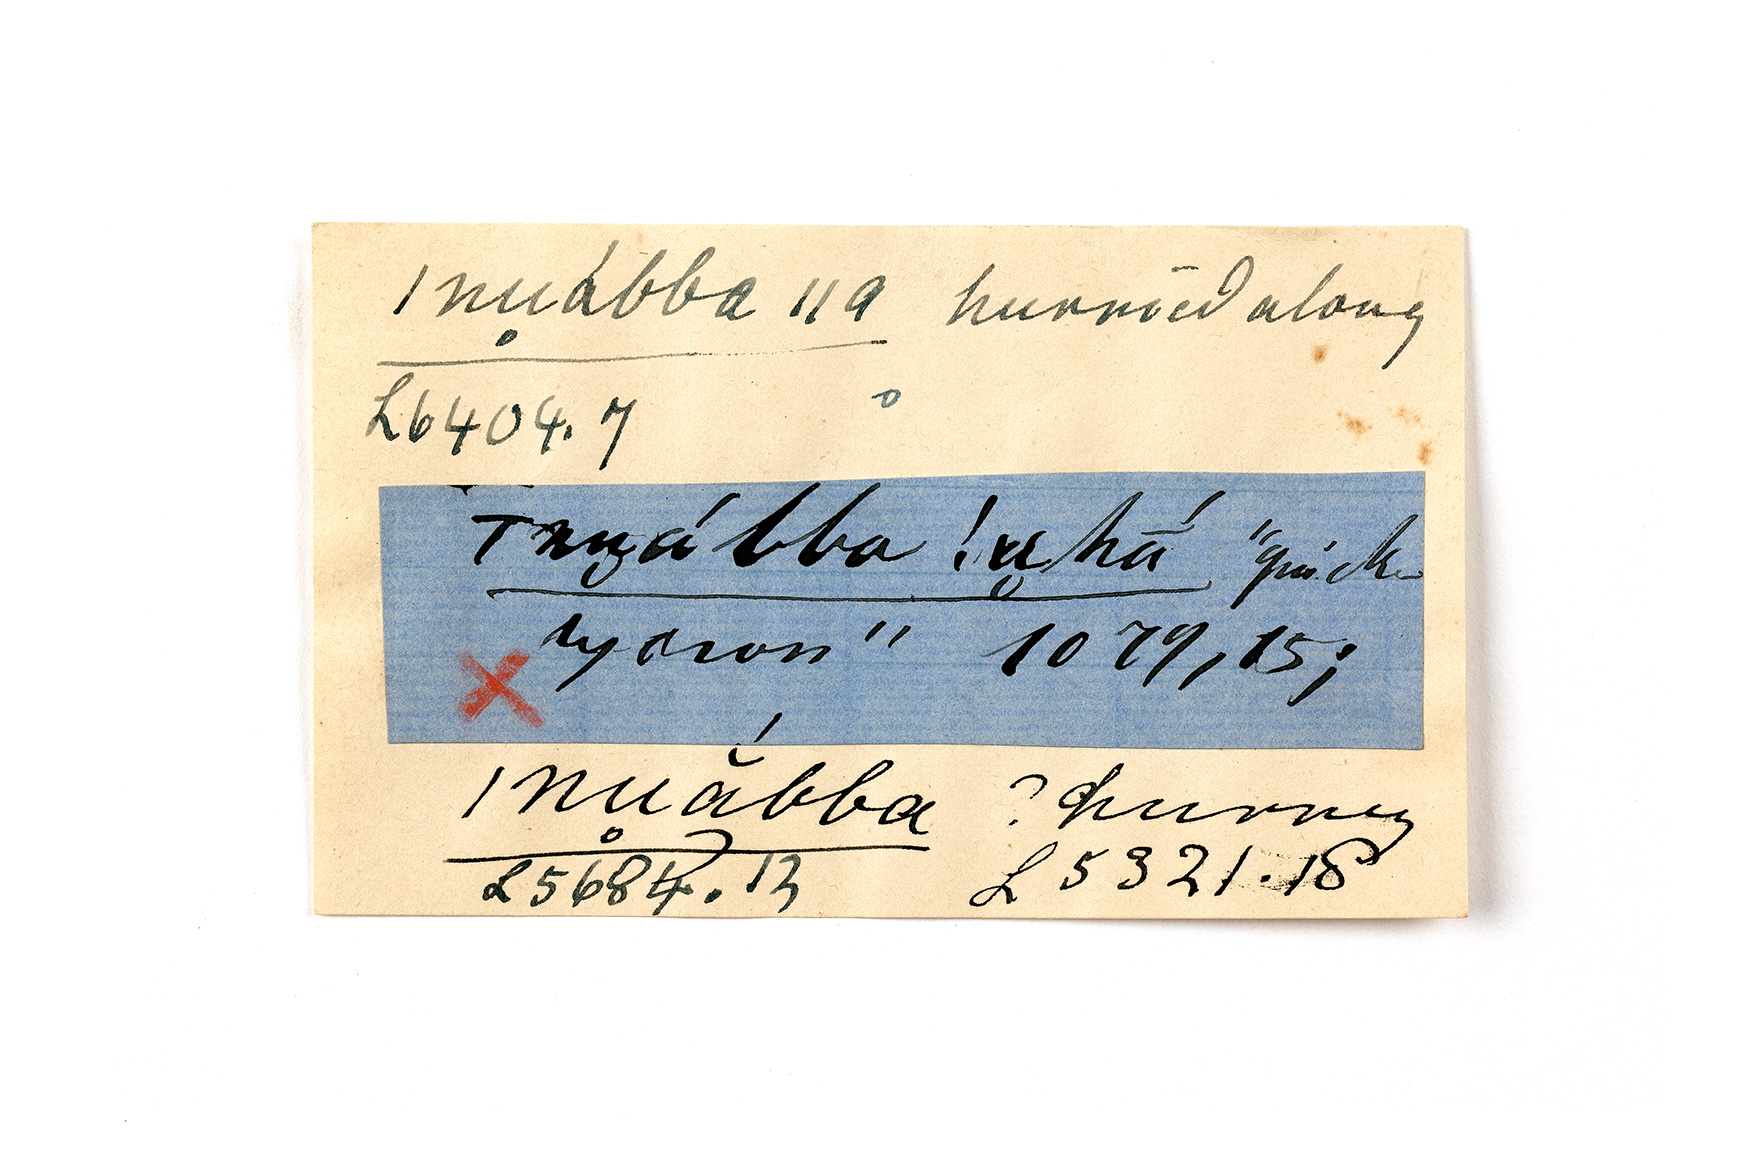 |nu̥ábba ||a hurried along
L6404.7
Tnu̥ábba !u̥há "quick
1079, 15;
|nu̥ắbba ? hurrey
L5684.13 L5321.18